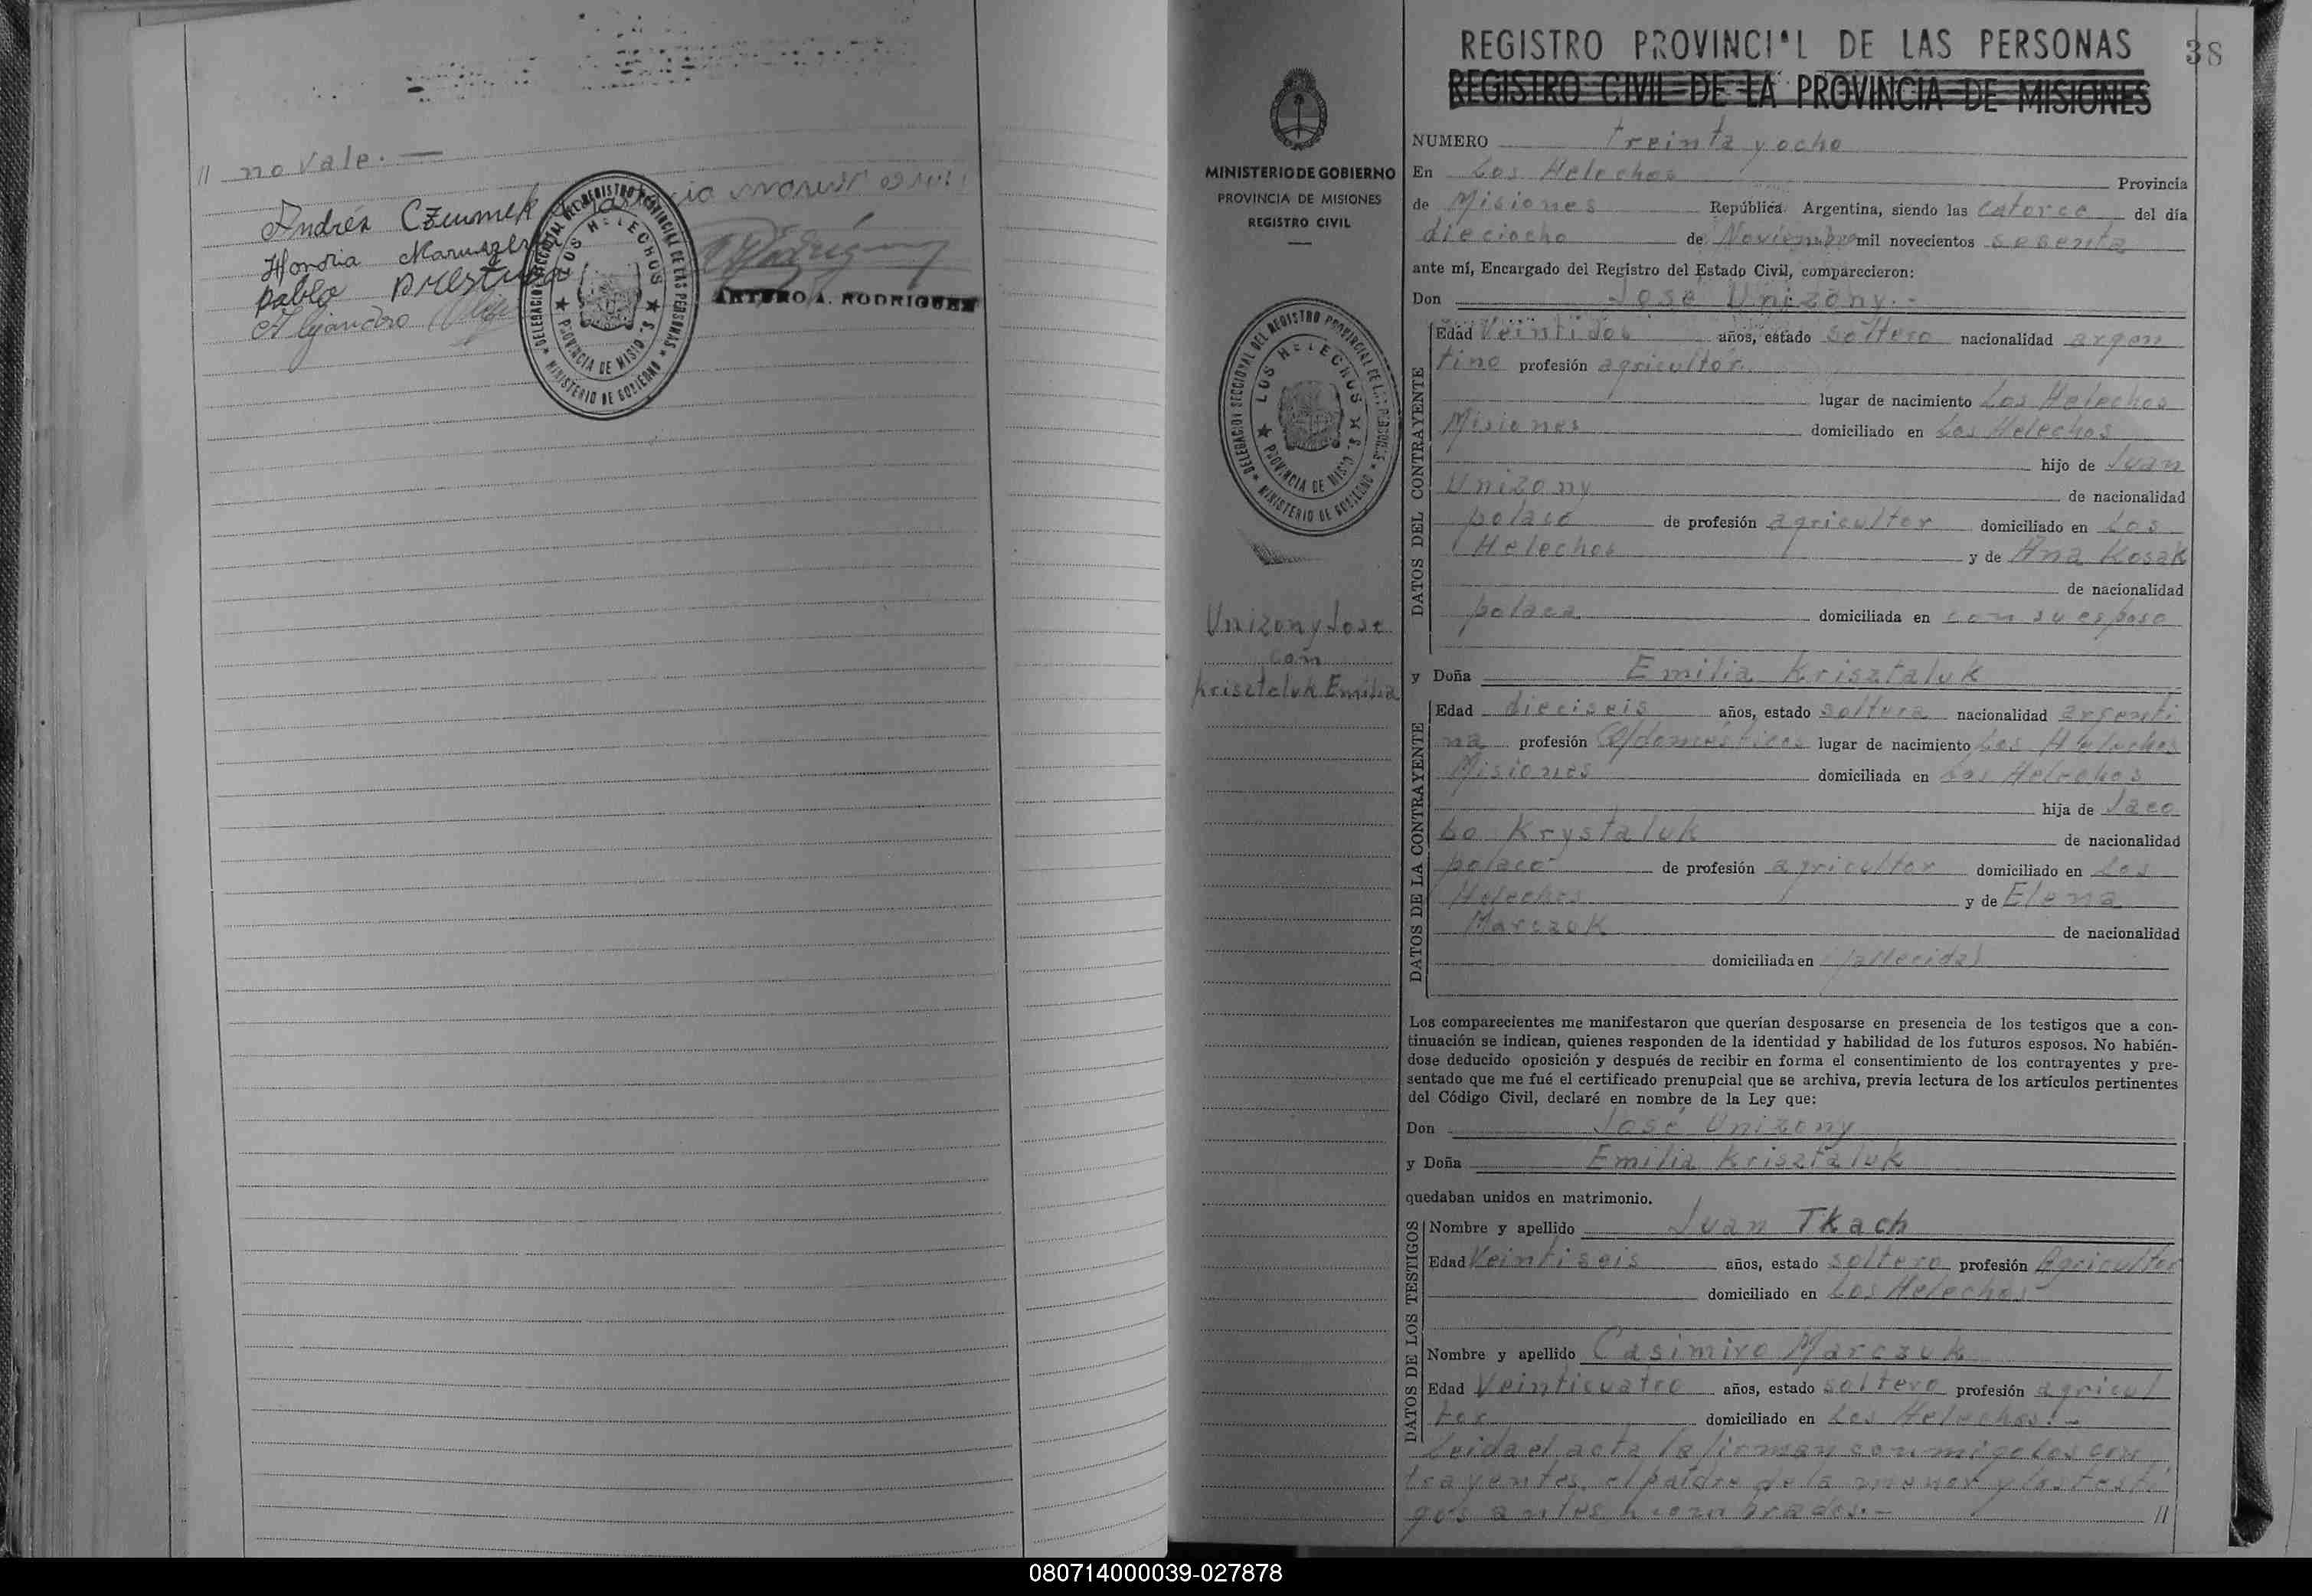 // no vale. —
Andrés Czeumek
Honoria
Pablo
Alejandro
ARTURO A. RODRIGUEZ
DELEGACION SECCIONAL DEL REGISTRO PROVINCIAL DE LAS PERSONAS
LOS HELECHOS
PROVINCIA DE MISIO S.
MINISTERIO DE GOBIERNO
REGISTRO PROVINCI L DE LAS PERSONAS
38
REGISTRO CIVIL DE LA PROVINCIA DE MISIONES
MINISTERIO DE GOBIERNO
PROVINCIA DE MISIONES
REGISTRO CIVIL
DELEGACION SECCIONAL DEL REGISTRO PROVINCIAL DE LAS PERSONAS
LOS HELECHOS
PROVINCIA DE MISIO S.
MINISTERIO DE GOBIERNO
Unizony Jose
con
Krisztaluk Emilia
NUMERO treinta y ocho
En Los Helechos Provincia
de Misiones República Argentina, siendo las catorce del día
dieciocho de Noviembre mil novecientos sesenta
ante mí, Encargado del Registro del Estado Civil, comparecieron:
Don José Unizony.-
DATOS DEL CONTRAYENTE
Edad Veintidos años, estado soltero nacionalidad argen
tino profesión agricultor
lugar de nacimiento Los Helechos
Misiones domiciliado en Los Helechos
hijo de Juan
Unizony de nacionalidad
polaco de profesión agricultor domiciliado en Los
Helechos y de Ana Kosak
de nacionalidad
polaca domiciliada en con su esposo
y Doña Emilia Krisztaluk
DATOS DE LA CONTRAYENTE
Edad dieciseis años, estado soltera nacionalidad argenti
na profesión Q/domesticos lugar de nacimiento Los Helechos
Misiones domiciliada en Los Helechos
hija de Jaco
bo Krystaluk de nacionalidad
polaco de profesión agricultor domiciliado en Los
Helechos y de Elena
Marczuk de nacionalidad
domiciliada en (fallecida)
Los comparecientes me manifestaron que querían desposarse en presencia de los testigos que a con-
tinuación se indican, quienes responden de la identidad y habilidad de los futuros esposos. No habién-
dose deducido oposición y después de recibir en forma el consentimiento de los contrayentes y pre-
sentado que me fué el certificado prenupcial que se archiva, previa lectura de los artículos pertinentes
del Código Civil, declaré en nombre de la Ley que:
Don José Unizony
y Doña Emilia Krisztaluk
quedaban unidos en matrimonio.
DATOS DE LOS TESTIGOS
Nombre y apellido Juan Tkach
Edad Veintiseis años, estado soltero profesión Agricultor
domiciliado en Los Helechos
Nombre y apellido Casimiro Marczuk
Edad Veinticuatro años, estado soltero profesión agricul
tor domiciliado en Los Helechos.-
Leida el acta la firman conmigo los con
trayentes, el padre de la menor y los testi
gos antes nombrados.- //
080714000039-027878